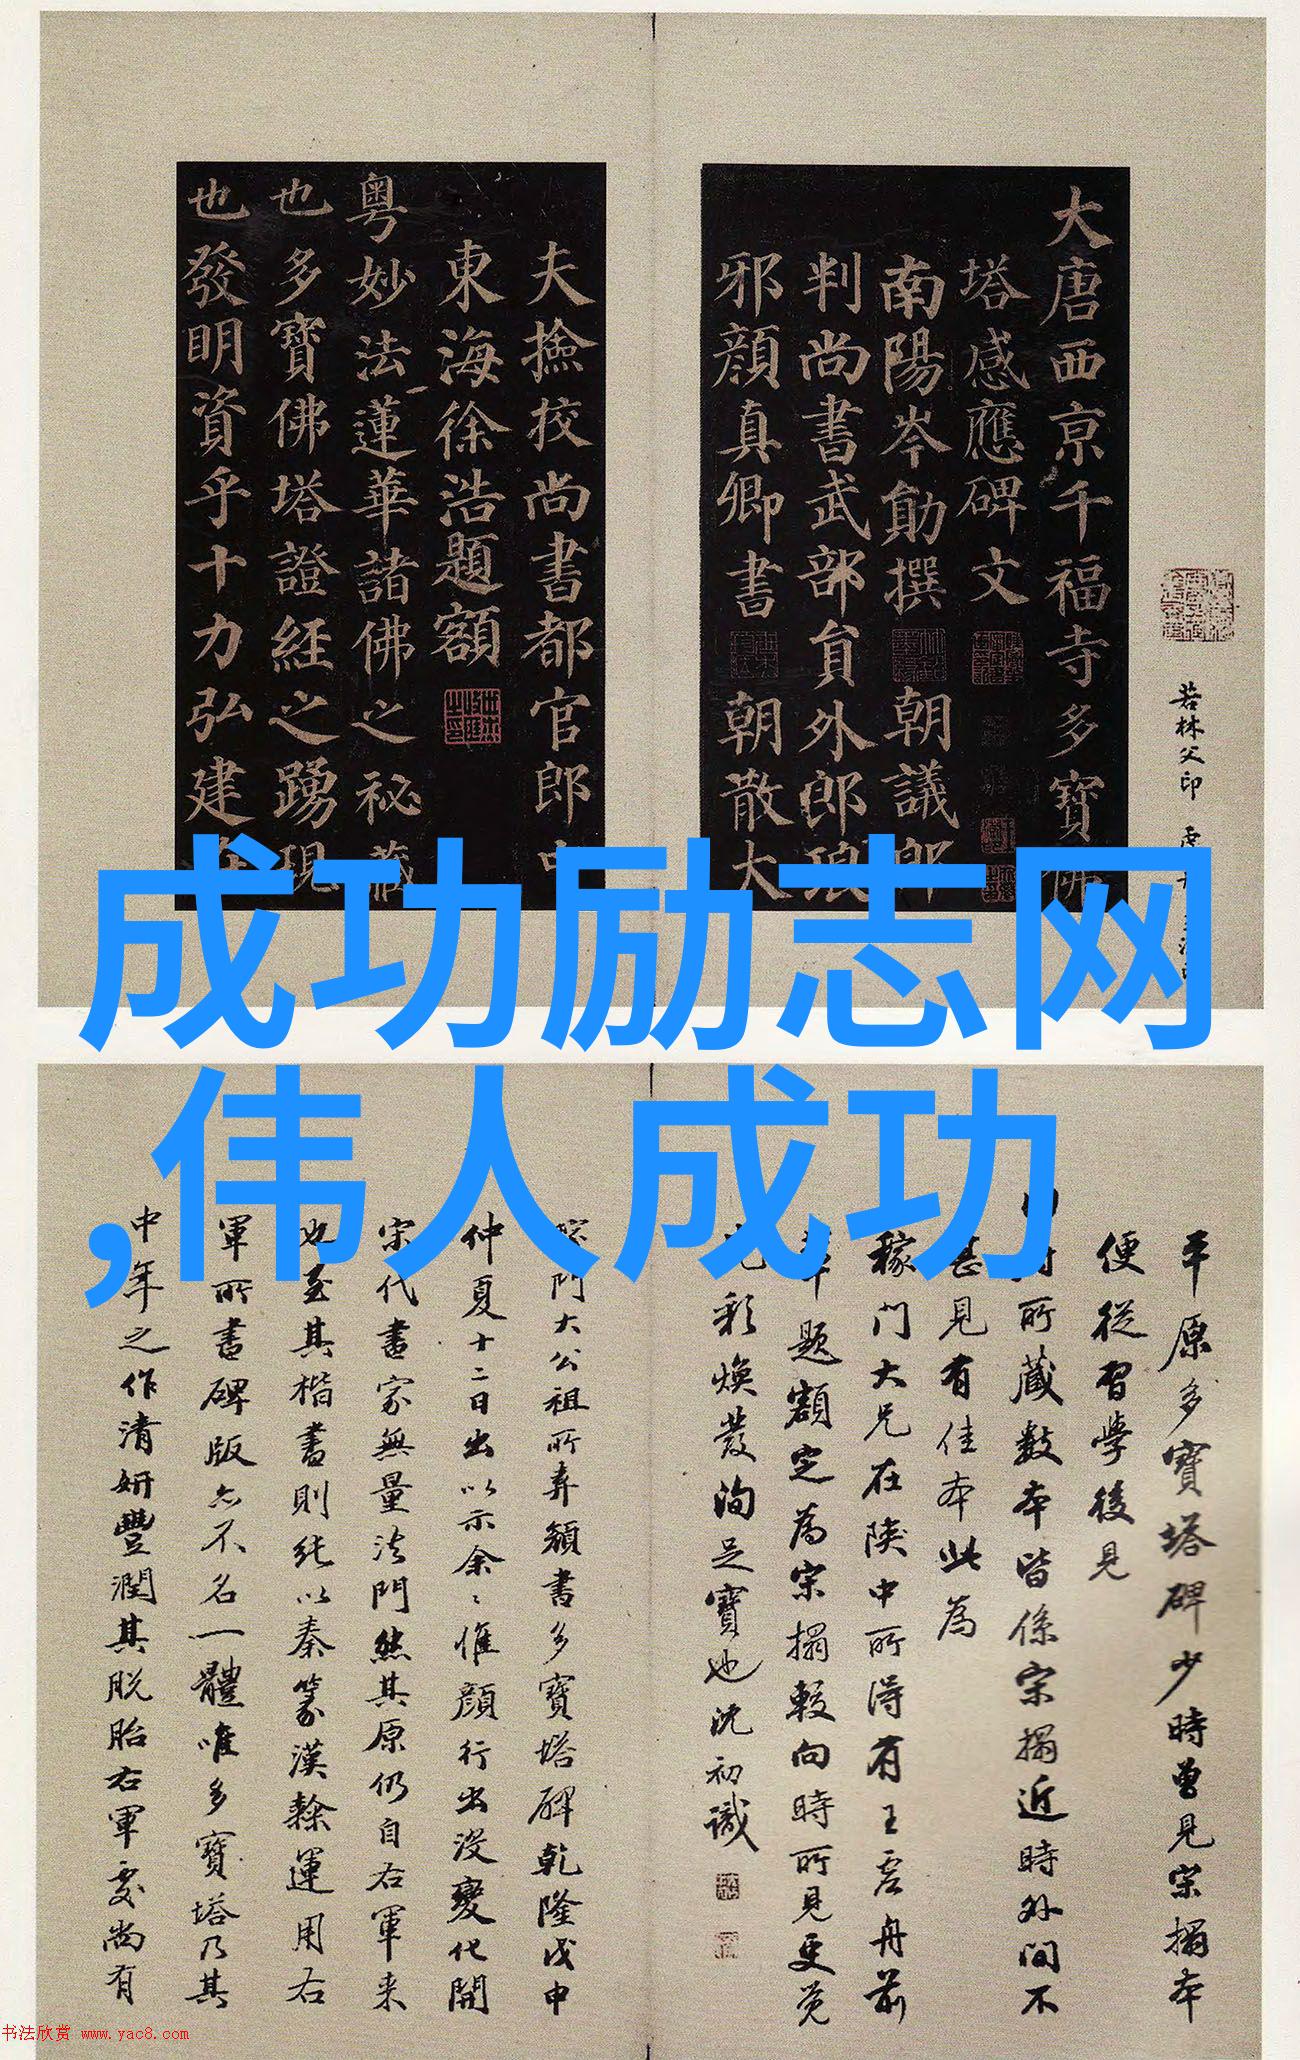 大唐西京千福寺多寶佛
塔感應碑文
南陽岑勛撰 朝議郎
判尚書武部員外郎琅
邪顏真卿書 朝散大
夫撿挍尚書都官郎中
東海徐浩題額
粵妙法蓮華諸佛之祕藏
也多寶佛塔證經之踴現
也發明資乎十力弘建在
若林父印
成功励志网
,伟人成功
平原多寶塔碑少時曾見宋搨本
便從習學後見
所藏數本皆係宋搨近時外間不
甚見有佳本此為
稼門大兄在陝中所得有王虛舟前
輩題額定為宋搨較向時所見更覺
光彩煥發洵足寶也沈初識
稼門大公祖所弆顏書多寶塔碑乾隆戊申
仲夏十二日出以示余〻惟顏行出沒變化開
宋代書家無量法門然其原仍自右軍来
也至其楷書則純以秦篆漢隸運用右
軍所書碑版亦不名一體唯多寶塔乃其
中年之作清妍豐潤其脫胎右軍處尚有
书法欣赏 www.yac8.com